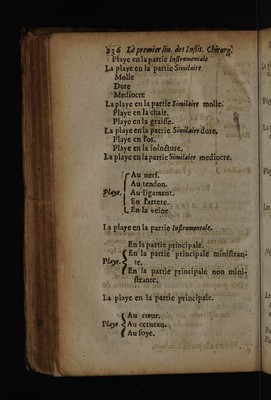 236 Le premier liu. des Instit. Chirurg.
Playe en la partie Instrumentale
La playe en la partie Similaire
Molle
Dure
Mediocre
La playe en la partie Similaire molle.
Playe en la chair.
Playe en la graisse.
La playe en la partie Similaire dure,
Playe en l'os.
Playe en la ioincture.
La playe en la partie Similaire mediocre.
Au nerf.
Au tendon.
Playe. Au ligament.
En l'artere.
En la veine.
La playe en la partie Instrumentale.
En la partie principale.
En la partie principale ministran-
Playe. te.
En la partie principale non mini-
strante.
La playe en la partie principale.
Au cœur.
Playe Au cerueau.
Au foye.